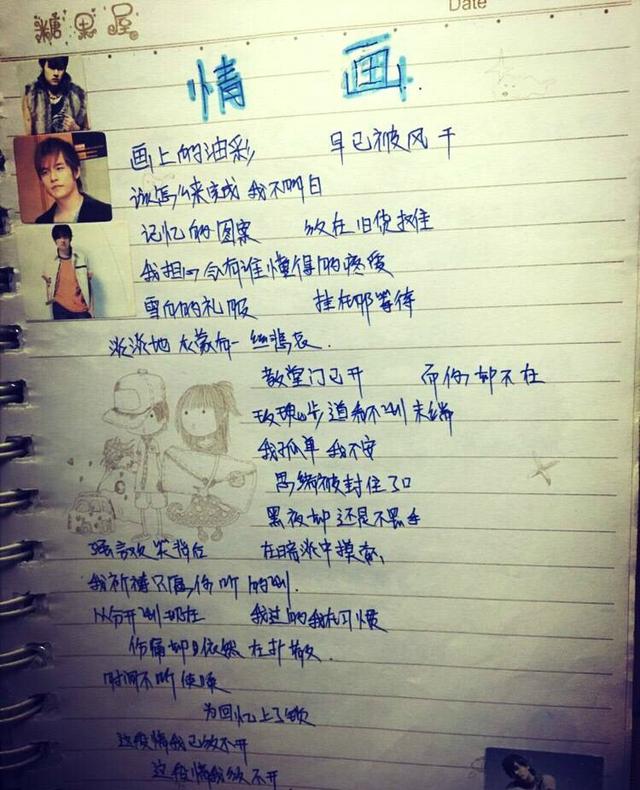 糖果屋
Date
情 画
画上的油彩 早已被风干
该怎么来完成 我不明白
记忆的图案 放在旧货
我担心会有谁懂得的疼爱
雪白的礼服 挂在那等待
淡淡地 衣蒙 一丝悲哀
教堂门已开 而你却不在
玫瑰步道看不到末端
我孤单 我不安
思绪被封住了口
黑夜却还是不罢手
强言欢笑背后 在暗淡中摸索
我祈祷只属你听的到
从分开到现在 我过的我在习惯
伤痛却依然在扑散
时间不断侵喙
为回忆上了锁
这段情我已放不开
这段情我放不开